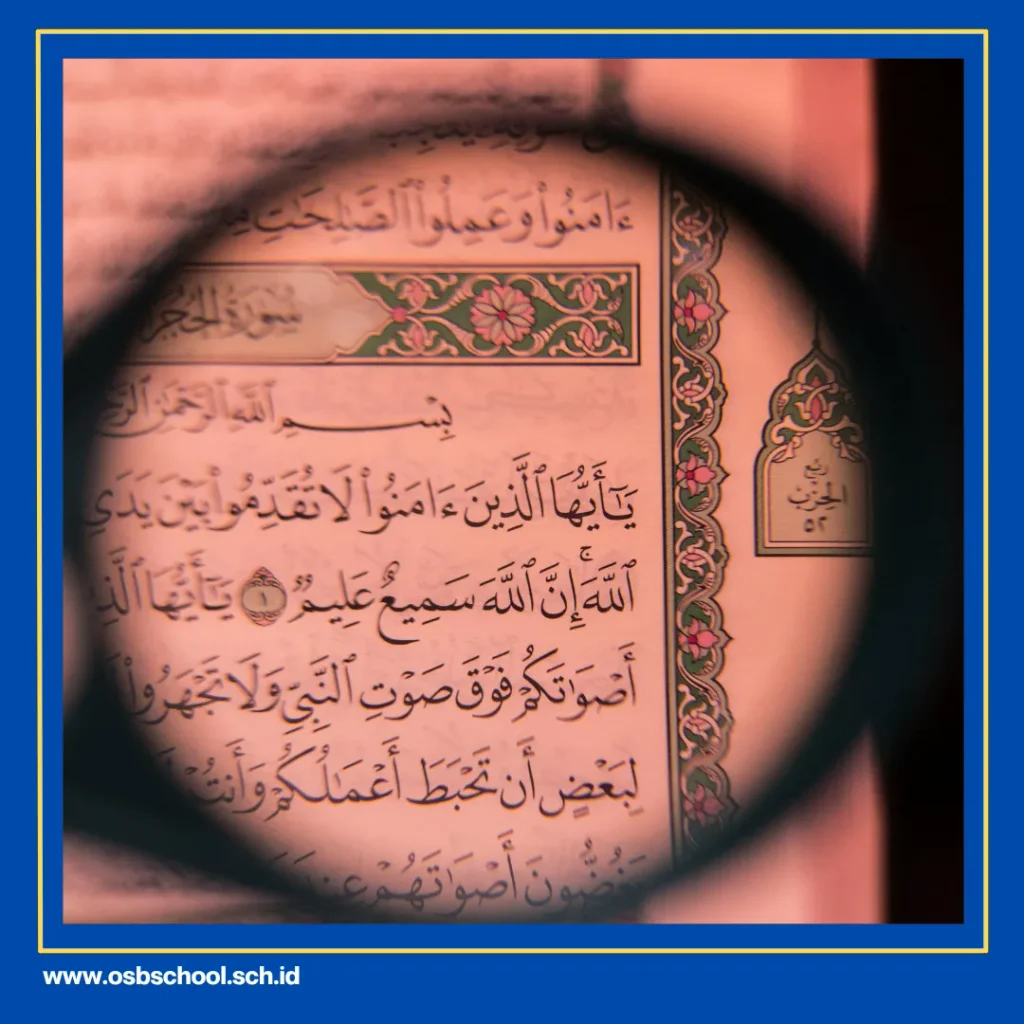 ءَامَنُوا۟ وَعَمِلُوا۟ ٱلصَّـٰلِحَـٰتِ
سُورَةُ الحُجُرَ
بِسْمِ ٱللَّهِ ٱلرَّحْمَـٰنِ
يَـٰٓأَيُّهَا ٱلَّذِينَ ءَامَنُوا۟ لَا تُقَدِّمُوا۟ بَيْنَ يَدَىِ
ٱللَّهَ ۚ إِنَّ ٱللَّهَ سَمِيعٌ عَلِيمٌ ١ يَـٰٓأَيُّهَا
أَصْوَٰتَكُمْ فَوْقَ صَوْتِ ٱلنَّبِىِّ وَلَا تَجْهَرُوا۟
لِبَعْضٍ أَن تَحْبَطَ أَعْمَـٰلُكُمْ وَأَنتُمْ
يَغُضُّونَ أَصْوَٰتَهُمْ
ربع
الحزب
٥٢
www.osbschool.sch.id